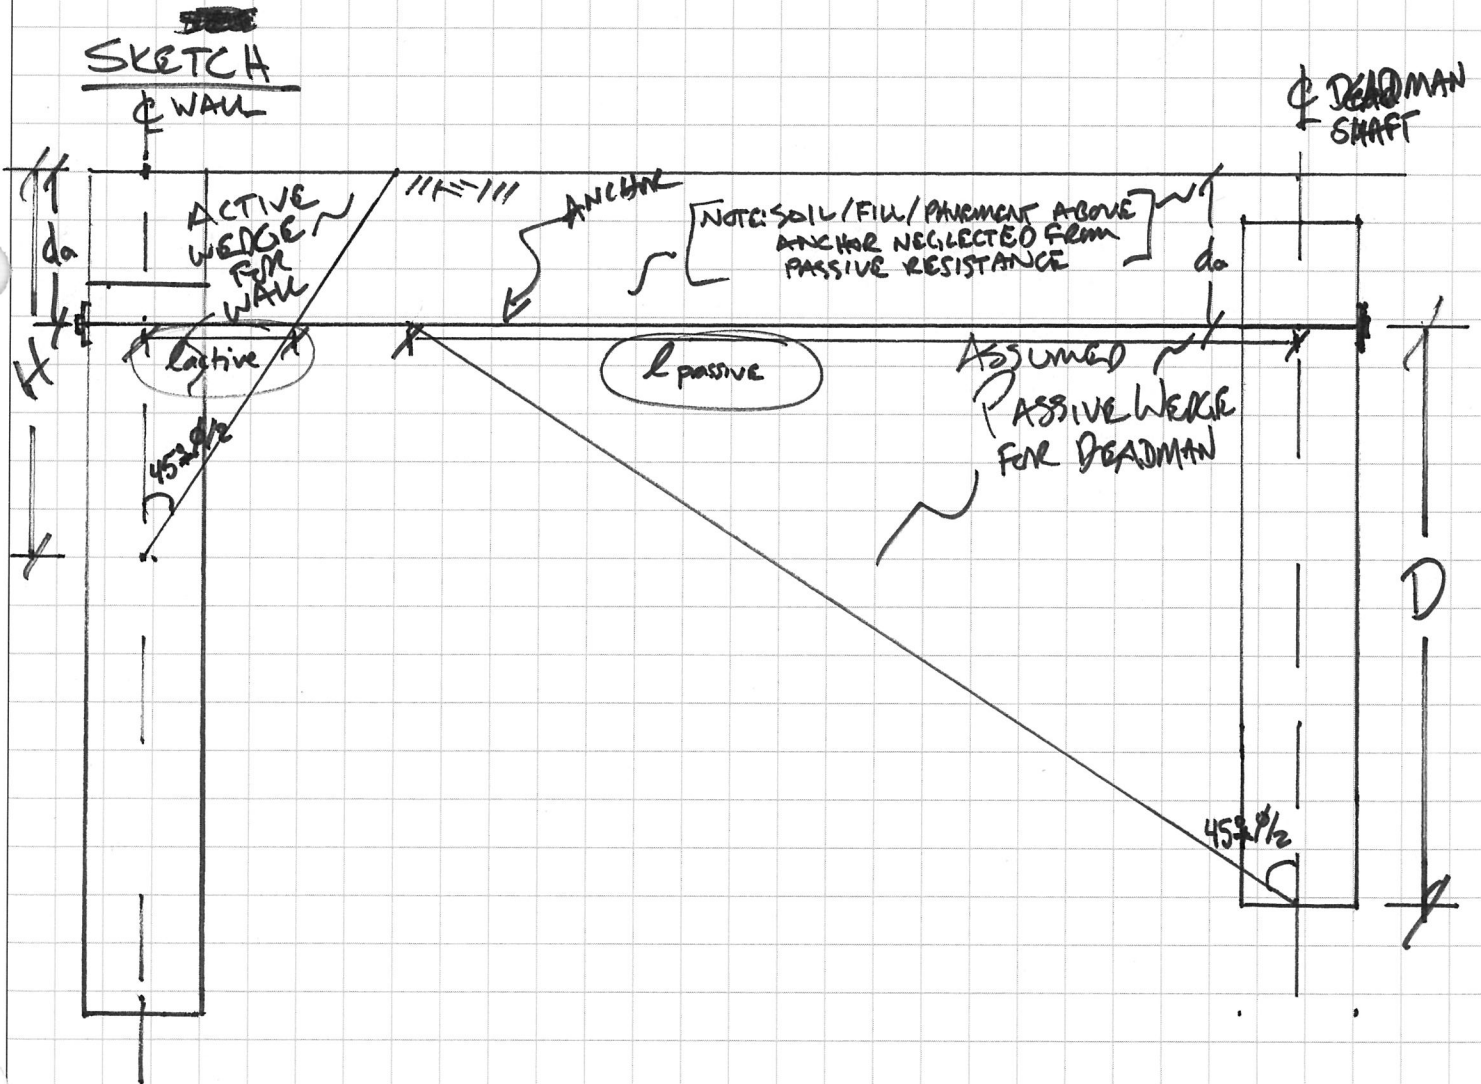 SKETCH
℄ WALL
℄ DEADMAN
SHAFT
ACTIVE
WEDGE
FOR
WALL
da
ANCHOR
NOTE: SOIL/FILL/PAVEMENT ABOVE
ANCHOR NEGLECTED FROM
PASSIVE RESISTANCE
da
H
lactive
lpassive
ASSUMED
PASSIVE WEDGE
FOR DEADMAN
D